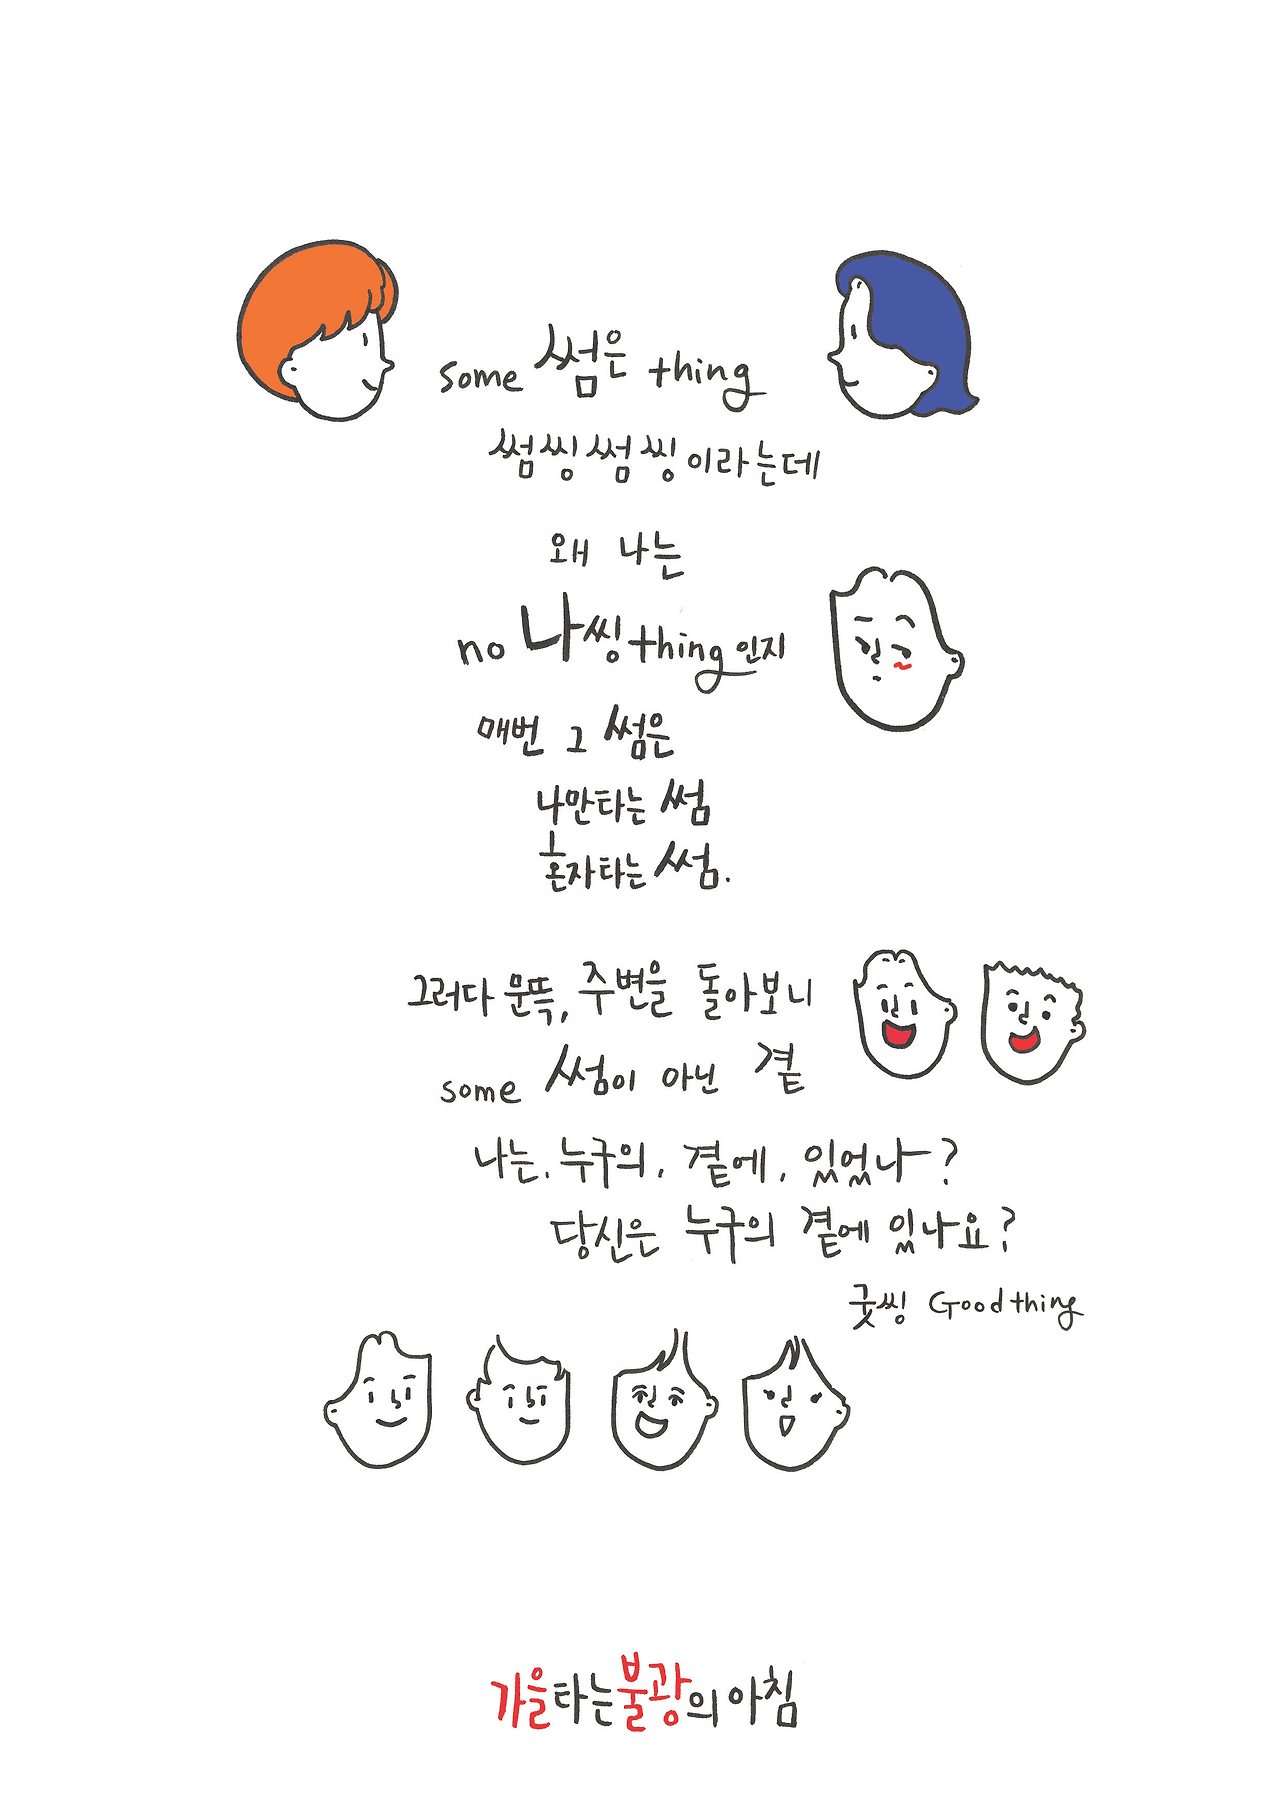 some 썸은 thing
썸씽썸씽이라는데
왜 나는
no 나씽 thing 인지
매번 그 썸은
나만타는 썸
혼자타는 썸.
그러다 문뜩, 주변을 돌아보니
some 썸이 아닌 곁
나는. 누구의, 곁에, 있었나?
당신은 누구의 곁에 있나요?
굿씽 Good thing
가을타는불광의 아침